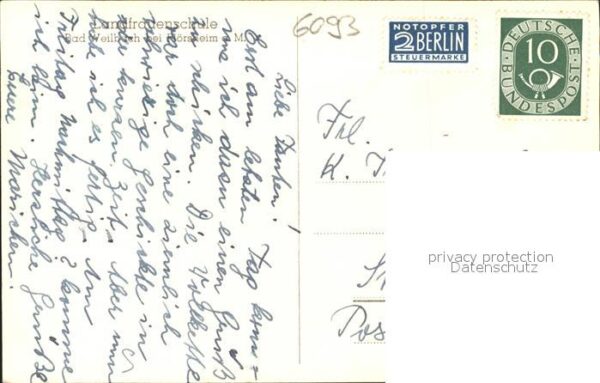 Landfrauenschule
Bad Weilbach bei Flörsheim a. M.
6093
NOTOPFER
2 BERLIN
STEUERMARKE
DEUTSCHE
BUNDESPOST
10
Liebe Tanten!
Erst am letzten Tag komme
ich dazu einen Gruß
zu schicken. Die
war doch eine ziemlich
schwierige Geschichte in
der kurzen Zeit. Aber nun
habe ich es fertig. Am
Freitag Nachmittag komme
ich heim. Herzliche Grüße
Euere Mariechen.
Frl.
K. T
St
Pos
privacy protection
Datenschutz